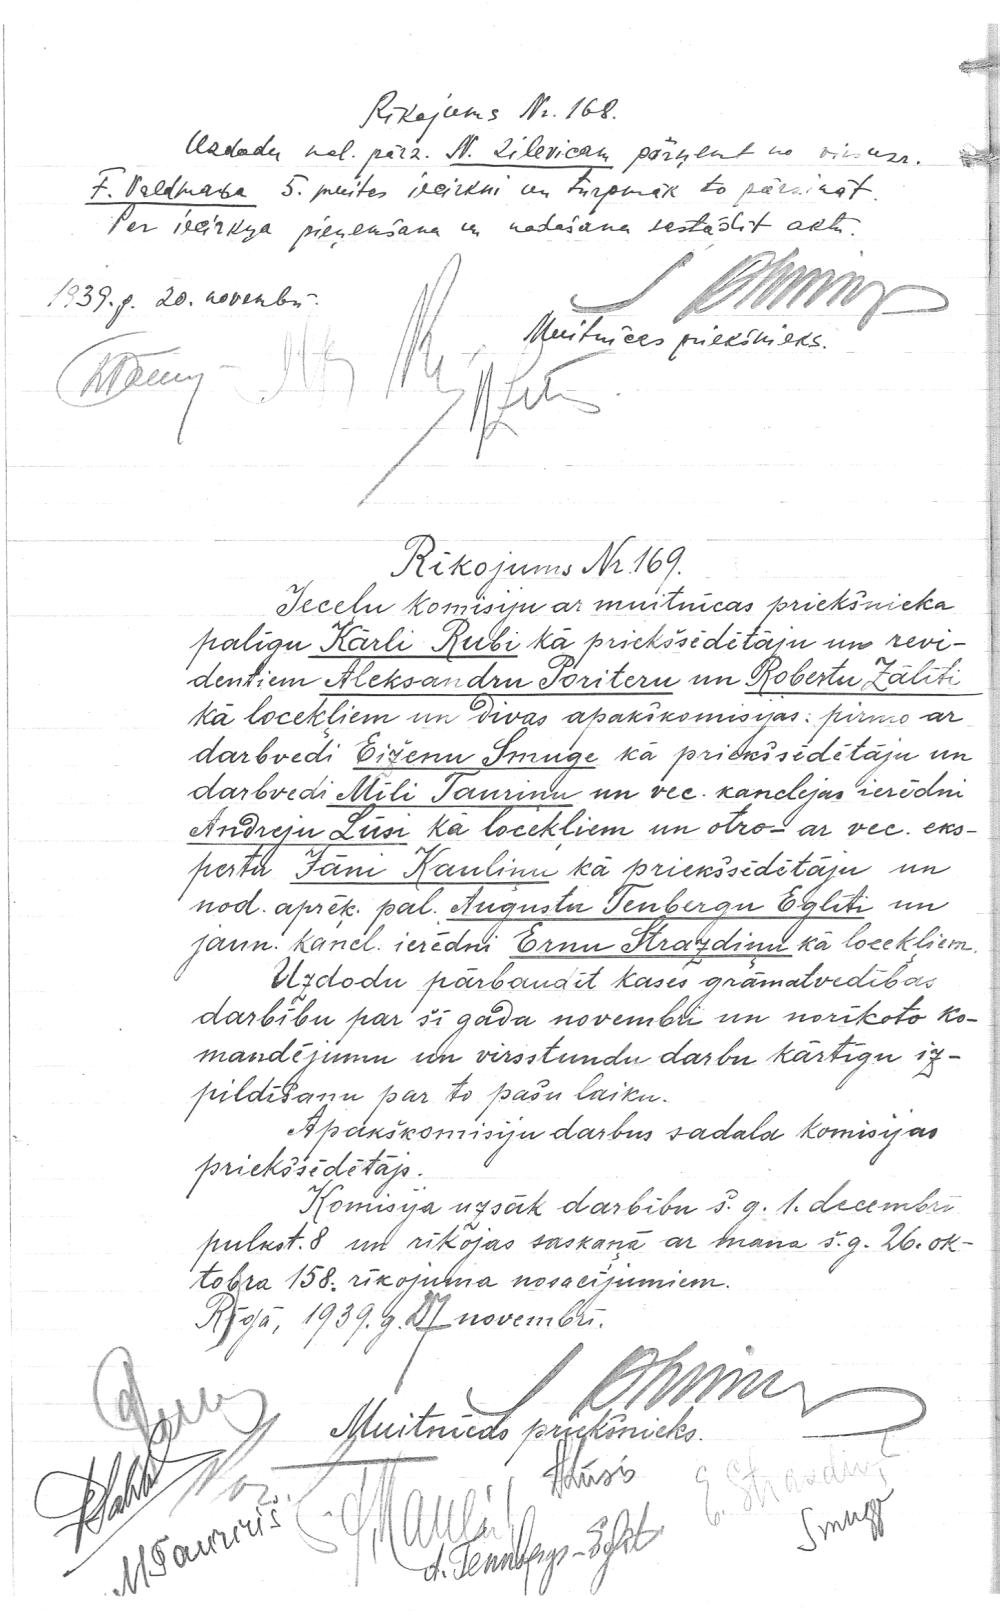 Rīkojums Nr. 168.
Uzdodu nol. pārz. N. Zilevicam pārņemt no virsuzr.
F. Valdmaņa 5. muitas iecirkni un turpmāk to pārzināt.
Par iecirkņa pieņemšanu un nodošanu sastādīt aktu.
1939. g. 20. novembrī.
Muitnīcas priekšnieks.
Rīkojums Nr. 169.
Ieceļu komisiju ar muitnīcas priekšnieka
palīgu Kārli Rubi kā priekšsēdētāju un revi-
dentiem Aleksandru Poriteru un Robertu Zālīti
kā locekļiem un divas apakškomisijas: pirmo ar
darbvedi Eiženu Smuge kā priekšsēdētāju un
darbvedi Mīli Tauriņu un vec. kancelejas ierēdni
Andreju Lūsi kā locekļiem un otro – ar vec. eks-
pertu Jāni Kauliņu kā priekšsēdētāju un
nod. aprēķ. pal. Augustu Tenbergu Eglīti un
jaun. kancl. ierēdni Ernu Strazdiņu kā locekļiem.
Uzdodu pārbaudīt kases grāmatvedības
darbību par šī gada novembri un norīkoto ko-
mandējumu un virsstundu darbu kārtīgu iz-
pildīšanu par to pašu laiku.
Apakškomisiju darbus sadala komisijas
priekšsēdētājs.
Komisija uzsāk darbību š. g. 1. decembrī
pulkst. 8 un rīkojas saskaņā ar mana š. g. 26. ok-
tobra 158. rīkojuma nosacījumiem.
Rīgā, 1939. g. 27 novembrī.
Muitnīcas priekšnieks.
ALūsis
E. Strazdiņ
MTauriņš
A. Tennbergs-Eglīt
Smugge